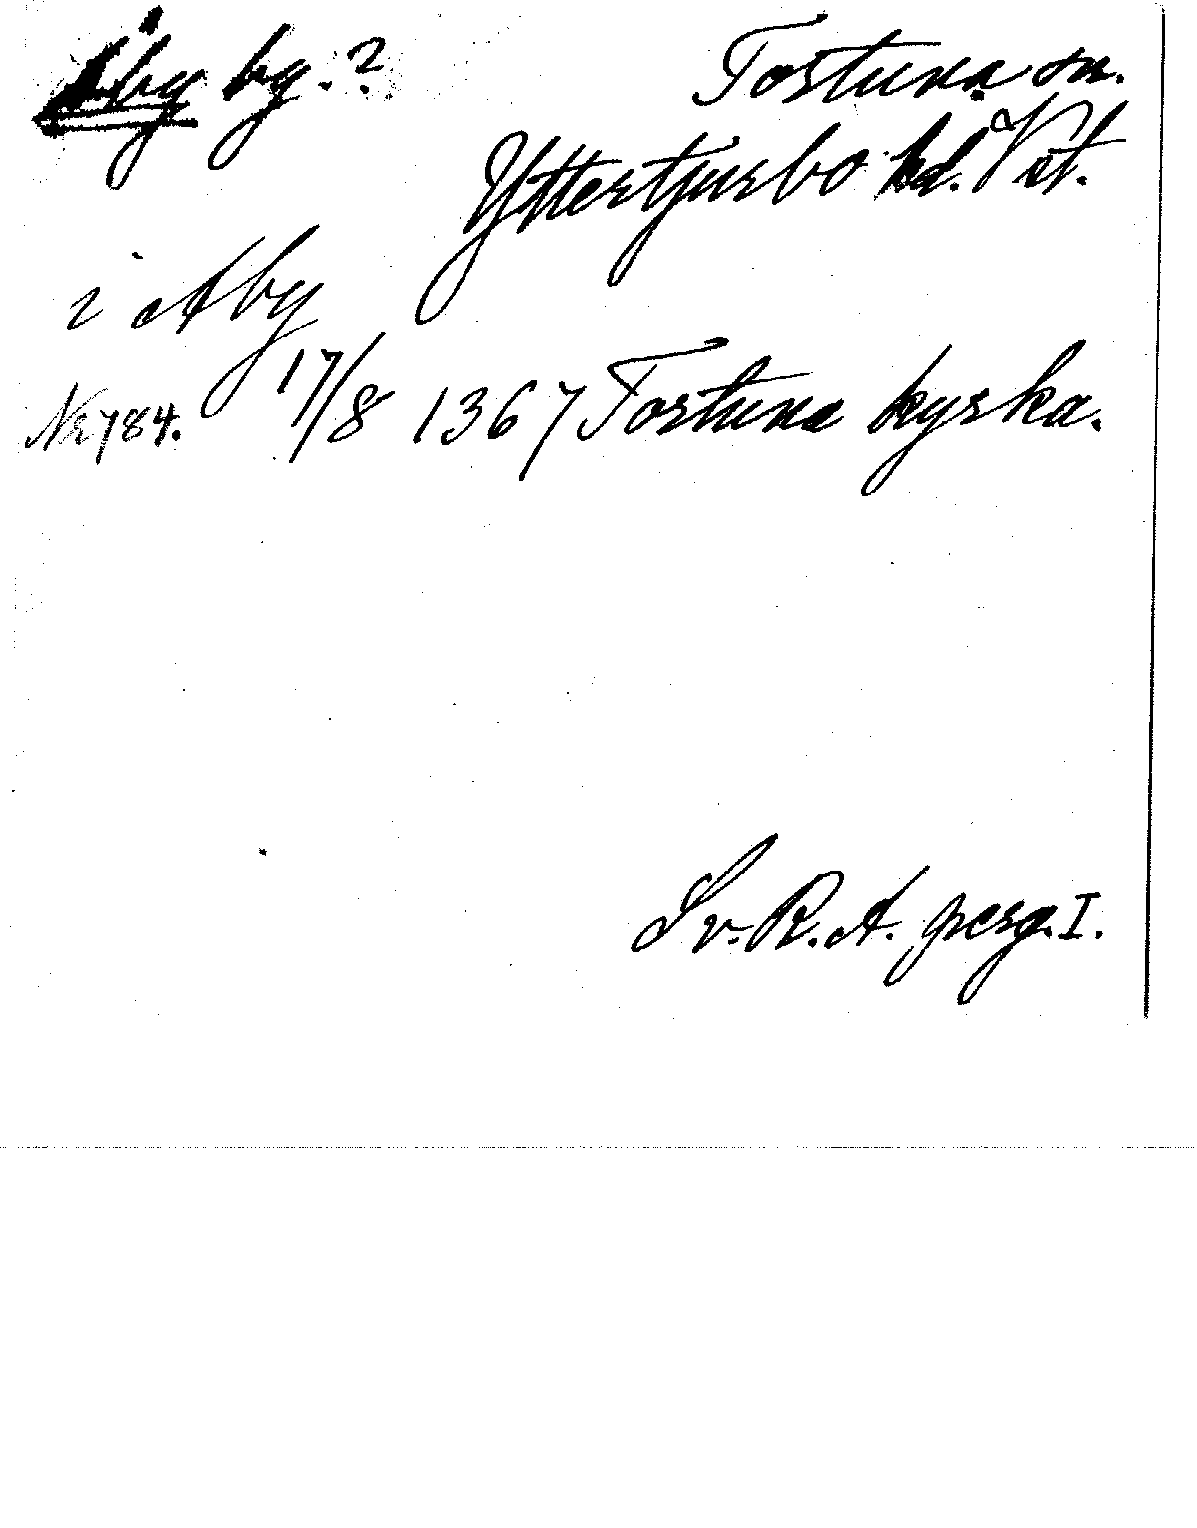 Åby by.? Tortuna sn.
Yttertjurbo hd. Vst.
i Aby
Nr 784. 17/8 1367 Tortuna kyrka.
Sv. R. A. perg. I.